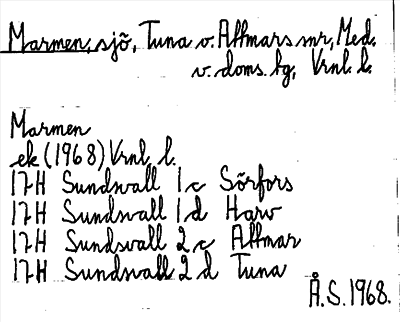 Marmen, sjö, Tuna o. Attmars snr, Med.
v. doms. hg, Vrnl. l.
Marmen
ek (1968) Vrnl. l.
17H Sundsvall 1c Sörfors
17H Sundsvall 1d Harv
17H Sundsvall 2c Attmar
17H Sundsvall 2d Tuna
Å.S. 1968.